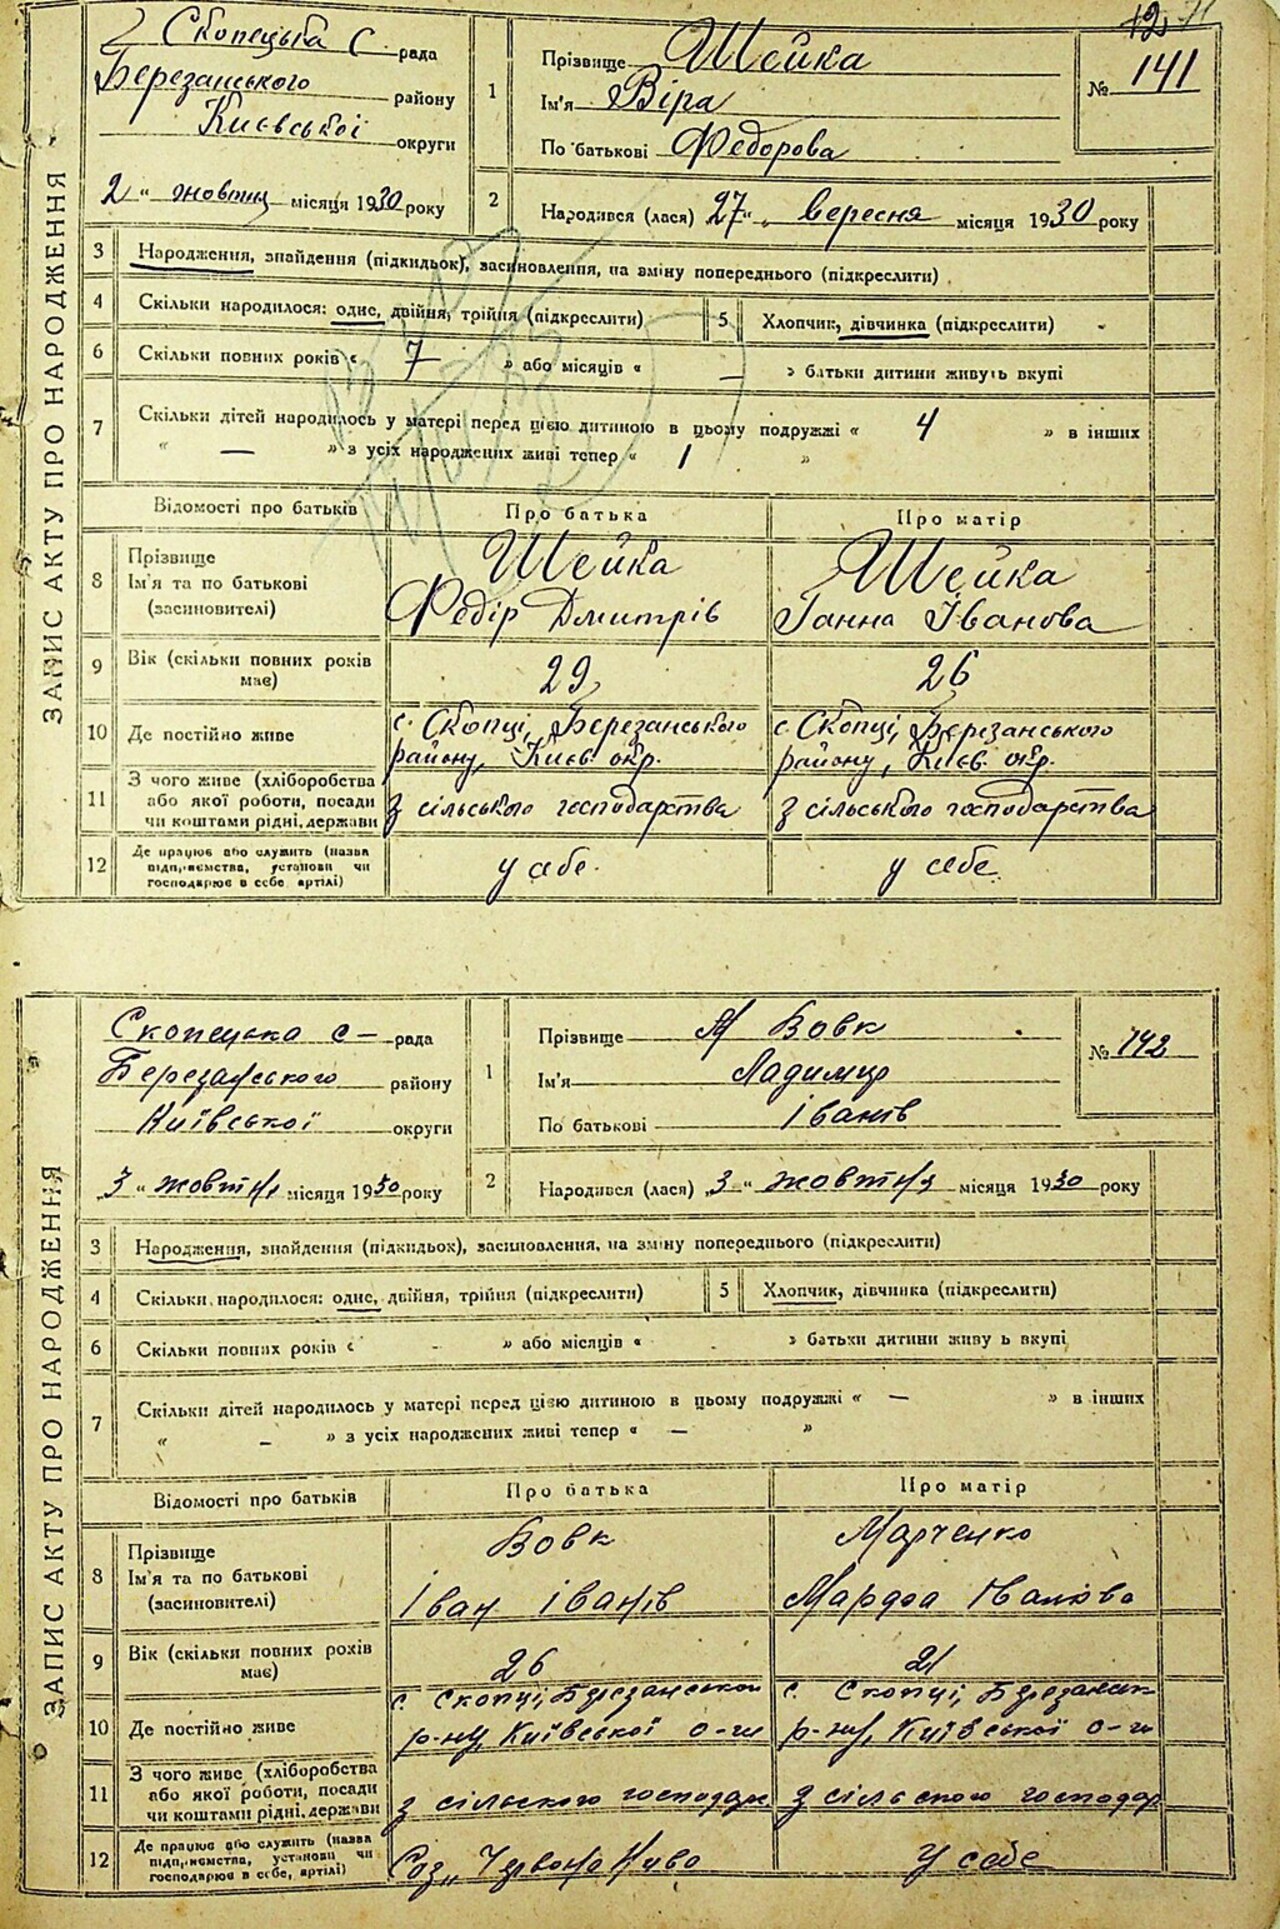 71
ЗАПИС АКТУ ПРО НАРОДЖЕННЯ
Скопецька с рада
Березанського району
Києвської округи
2 " жовтня місяця 1930 року
1 Прізвище Шейка
Ім'я Віра
По батькові Федорова
№ 141
2 Народився (лася) 27 " вересня місяця 1930 року
3 Народження, знайдення (підкидьок), засиновлення, на зміну попереднього (підкреслити)
4 Скільки народилося: одне, двійня, трійня (підкреслити) 5 Хлопчик, дівчинка (підкреслити)
6 Скільки повних років « 7 » або місяців « — » батьки дитини живуть вкупі
7 Скільки дітей народилось у матері перед цією дитиною в цьому подружжі « 4 » в інших
« — » з усіх народжених живі тепер « 1 »
Відомості про батьків Про батька Про матір
8 Прізвище Ім'я та по батькові (засиновителі) Шейка Федір Дмитрів Шейка Ганна Іванова
9 Вік (скільки повних років має) 29 26
10 Де постійно живе с. Скопці, Березанського району, Києв. окр. с Скопці, Березанського району, Києв. окр.
11 З чого живе (хліборобства або якої роботи, посади чи коштами рідні, держави з сільського господарства з сільського господарства
12 Де працює або служить (назва підприємства, установи чи господарює в себе артілі) у себе. у себе
ЗАПИС АКТУ ПРО НАРОДЖЕННЯ
Скопецька с – рада
Березанського району
Київської округи
„3 " жовтня місяця 1930 року
1 Прізвище Вовк
Ім'я Ладимир
По батькові Іванів
№ 142
2 Народився (лася) „3 " жовтня місяця 1930 року
3 Народження, знайдення (підкидьок), засиновлення, на зміну попереднього (підкреслити)
4 Скільки народилося: одне, двійня, трійня (підкреслити) 5 Хлопчик, дівчинка (підкреслити)
6 Скільки повних років « - » або місяців « » батьки дитини живу ь вкупі
7 Скільки дітей народилось у матері перед цією дитиною в цьому подружжі « — » в інших
« – » з усіх народжених живі тепер « — »
Відомості про батьків Про батька Про матір
8 Прізвище Ім'я та по батькові (засиновителі) Вовк Іван Іванів Марченко Марфа Іванова
9 Вік (скільки повних рохів має) 26 21
10 Де постійно живе с. Скопці, Березанськог р-ну, Київської о-ги с. Скопці, Березанськ р-ну, Київської о-ги
11 З чого живе (хліборобства або якої роботи, посади чи коштами рідні, держави з сільского господарс з сільского господар
12 Де працює або служить (назва підприємства, установи чи господарює в себе, артілі) Соз „ Червона Нива У себе